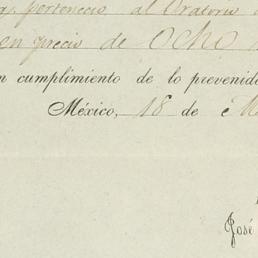 perteneció al Oratorio
en precio de Ocho
cumplimiento de lo prevenid
México, 18 de
José